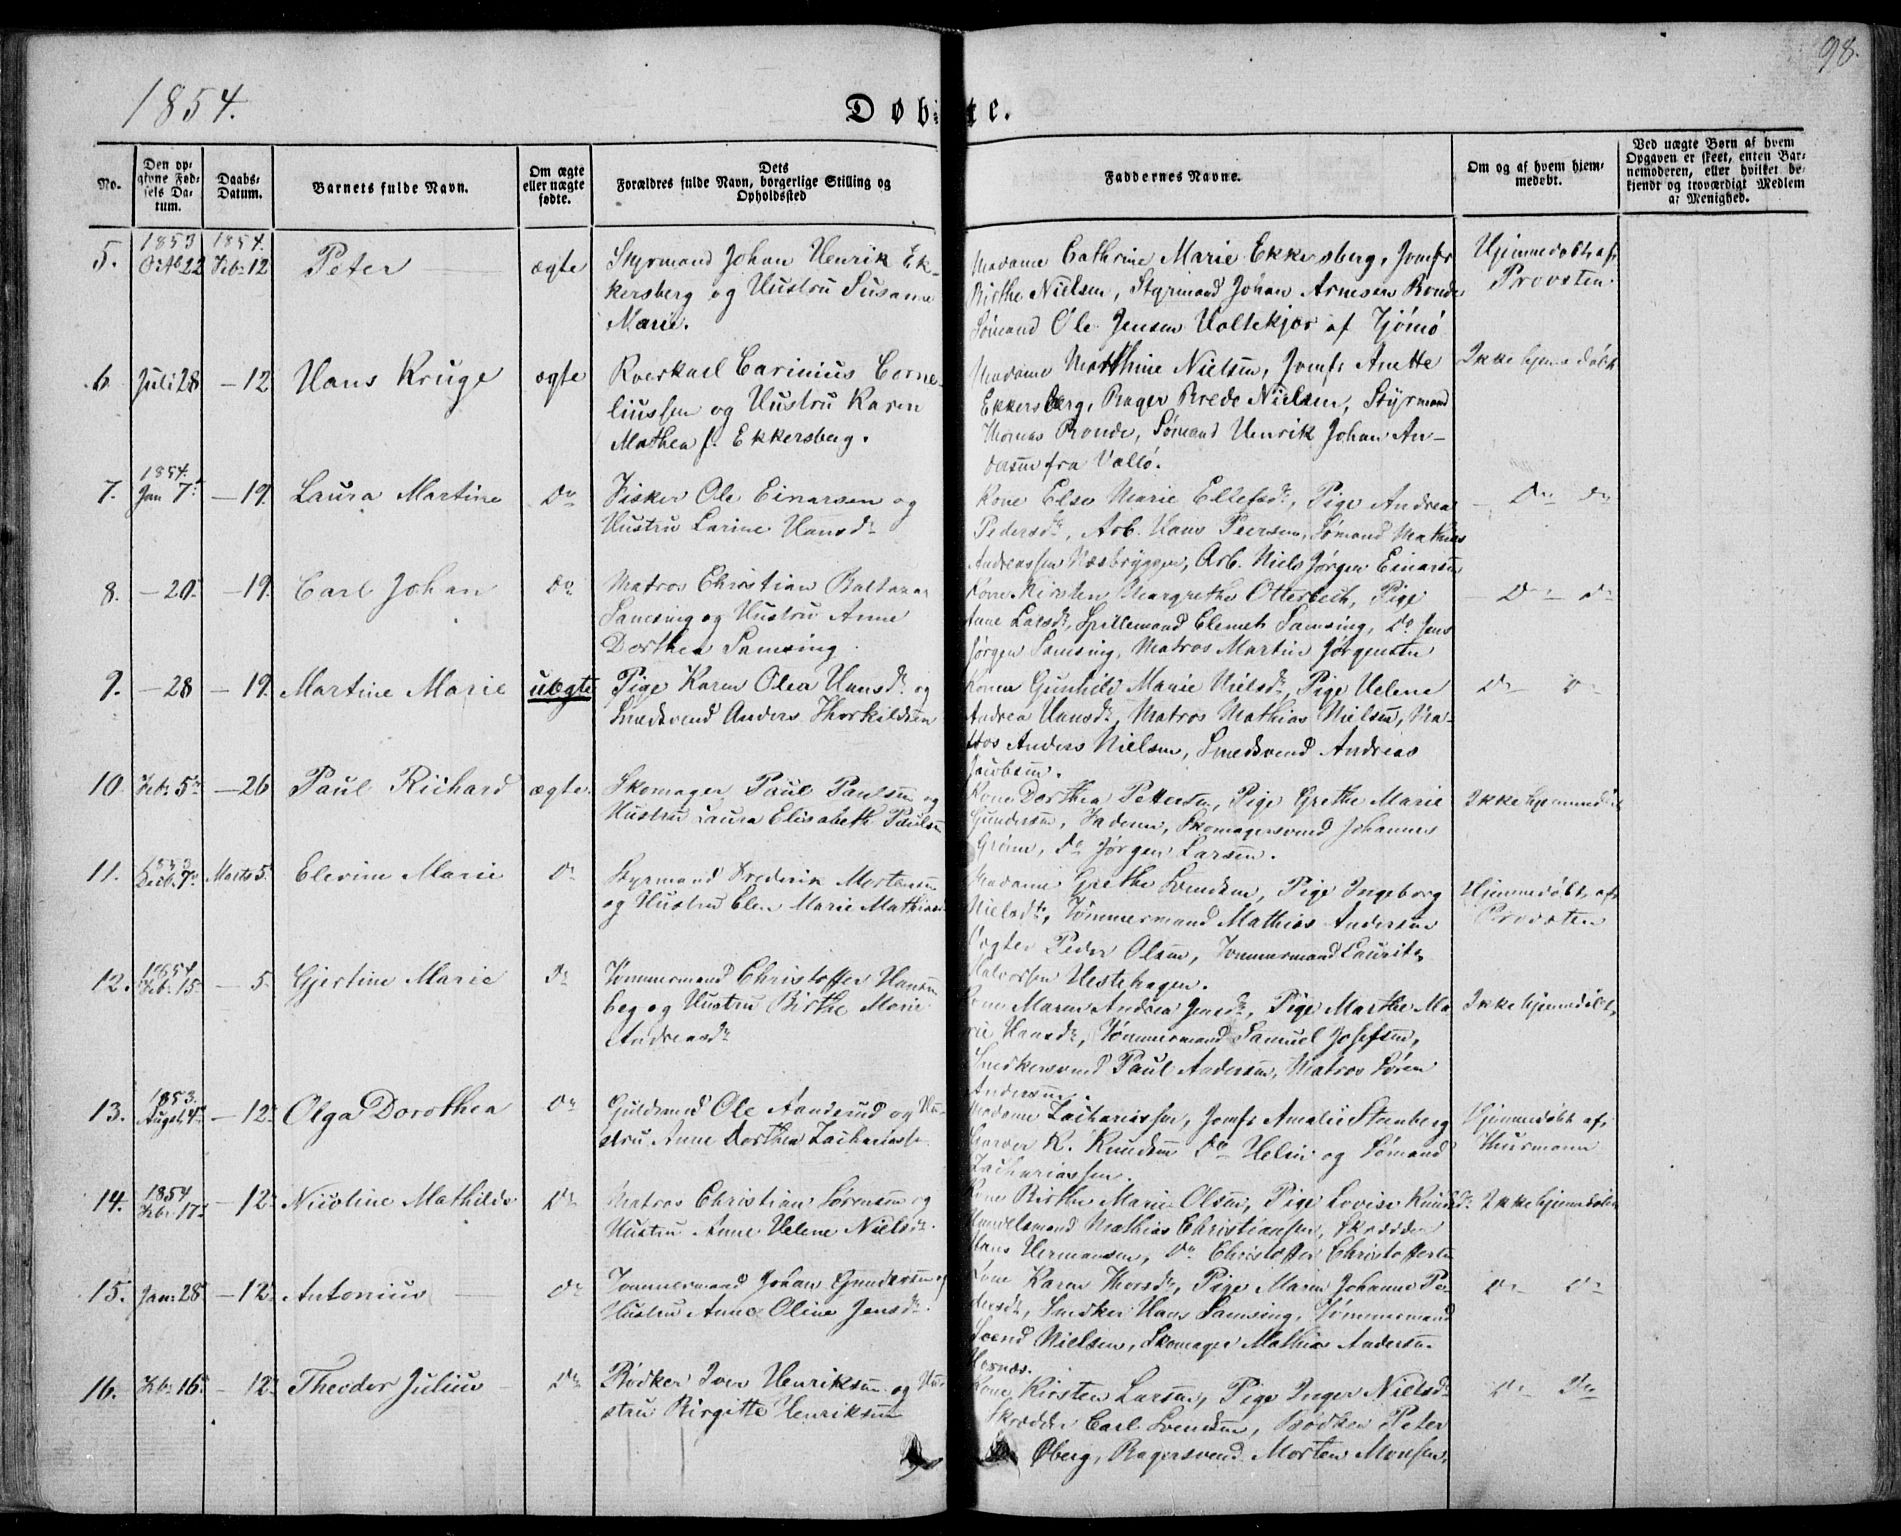 98.
1854.
Døbte.
No.
Den opgivne Fødsels Datum.
Daabs-Datum.
Barnets fulde Navn.
Om ægte eller uægte fødte.
Dets Forældres fulde Navn, borgerlige Stilling og Opholdssted
Faddernes Navne.
Om og af hvem hjemmedøbt.
Ved uægte Børn af hvem Opgaven er skeet, enten Barnemoderen, eller hvilket bekjendt og troværdigt Medlem af Menighed.
5. 1853 Octb 22 1854. Feb: 12 Peter ægte Styrmand Johan Henrik Ek-
kersberg og Hustru Susanne
Marie.
Madame Cathrine Marie Ekkersberg, Jomfr
Birthe Nielsen, Styrmand Johan Arnesen Ronde
Sømand Ole Jensen Holtekjær af Tjömö
Hjemmedøbt af
Provsten.
6. Juli 28 – 12 Hans Kruge ægte Carinius Corne-
liussen og Hustru Karen
Mathea f. Ekkersberg.
Madame Mathine Nielsen, Jomfr Anette
Ekkersberg, Bager Brede Nielsen, Styrmand
Thomas Ronde, Sømand Henrik Johan An-
dersen fra Vallö.
Ikke hjemmedøbt
7. 1854. Jan 7 – 19. Laura Martine Do Fisker Ole Einarsen og
Hustru Larine Hansdr
Kone Else Marie Ellefsdr, Pige Andrea
Pedersdr, Arb. Hans Peersen, Sømand Mathias
Andreassen Næsbryggen, Arb. Niels Jørgen Einarsen
– Do Do
8. – 20 – 19. Carl Johan Do Matros Christian Baltazar
Samsing og Hustru Anne
Dorthea Samsing.
Kone Kirsten Margrethe Otterbech, Pige
Anne Larsdr, Spillemand Clemet Samsing, Do Jens
Jørgen Samsing, Matros Martin Jørgensen
– Do – Do
9. – 28 – 19. Martine Marie uægte Pige Karen Olea Hansdr og
Smedsvend Anders Thorkildsen
Konen Gunhild Marie Nielsdr, Pige Helene
Andrea Hansdr, Matros Mathias Nielsen, Ma-
tros Anders Nielsen, Smedsvend Andreas
Jacobsen.
Do Do
10. Feb: 5 – 26 Paul Richard ægte. Skomager Paul Paulsen og
Hustru Laura Elisabeth Paulsen
Kone Dorthea Pettersen, Pige Grethe Marie
Gundersen, Faderen, Skomagersvend Johannes
Grøne, Do Jørgen Larsen.
Ikke hjemmedøbt
11. 1853 Decb. 7 Marts 5. Elevine Marie Do Styrmand Frederik Mortensen
og Hustru Elen Marie Mathiasd
Madame Grethe Svendsen, Pige Ingeborg
Nielsdr, Tømmermand Mathias Andersen
Peder Olsen, Tømmermand Laurits
Halvorsen Hestehagen.
Hjemmedøbt af
Provsten
12. 1854 Feb: 15 – 5. Gjertine Marie Do Tømmermand Christoffer Hansen
beg og Hustru Birthe Marie
Andreasdr
Kone Maren Andrea Jensdr, Pige Marthe Ma-
rie Hansdr, Tømmermand Samuel Josefsen,
Snedkersvend Paul Andersen, Matros Søren
Andersen.
Ikke hjemmedøbt,
13. 1853. August 4 – 12 Olga Dorothea Do Guldsmed Ole Aanderud og Hu-
stru Anne Dorthea Zachariassen
Madame Zachariassen, Jomfr Amalie Steenberg
Garver K. Knudsen Do Helin og Sømand
Zachariassen.
Hjemmedøbt af
Thurmann
14. 1854 Feb: 17 – 12 Nicoline Mathilde Do Matros Christian Sørensen og
Hustru Anne Helene Nielsdr.
Kone Birthe Marie Olsen, Pige Lovise Knudsdr.
Handelsmand Mathias Christiansen, Skrædder
Hans Hermansen, Do Christoffer Christoffersen
Ikke hjemmedøbt
15. Jan: 28 – 12 Antonius Do Tømmermand Johan Gundersen og
Hustru Anne Oline Jensdr.
Kone Karen Thorsdr, Pige Maren Johanne Pe-
dersdr, Snedker Hans Samsing, Tømmermand
Svend Nielsen, Skomager Mathias Andersen
Hernæs.
Do Do
16. Feb: 16 – 12 Theodor Julius Do Bødker Iver Henriksen og Hu-
stru Birgitte Henriksen
Kone Kirsten Larsen, Pige Inger Nielsdr
Skrædder Carl Svendsen, Bødker Peter
Øberg, Bagersvend Morten Monsen.
Do Do